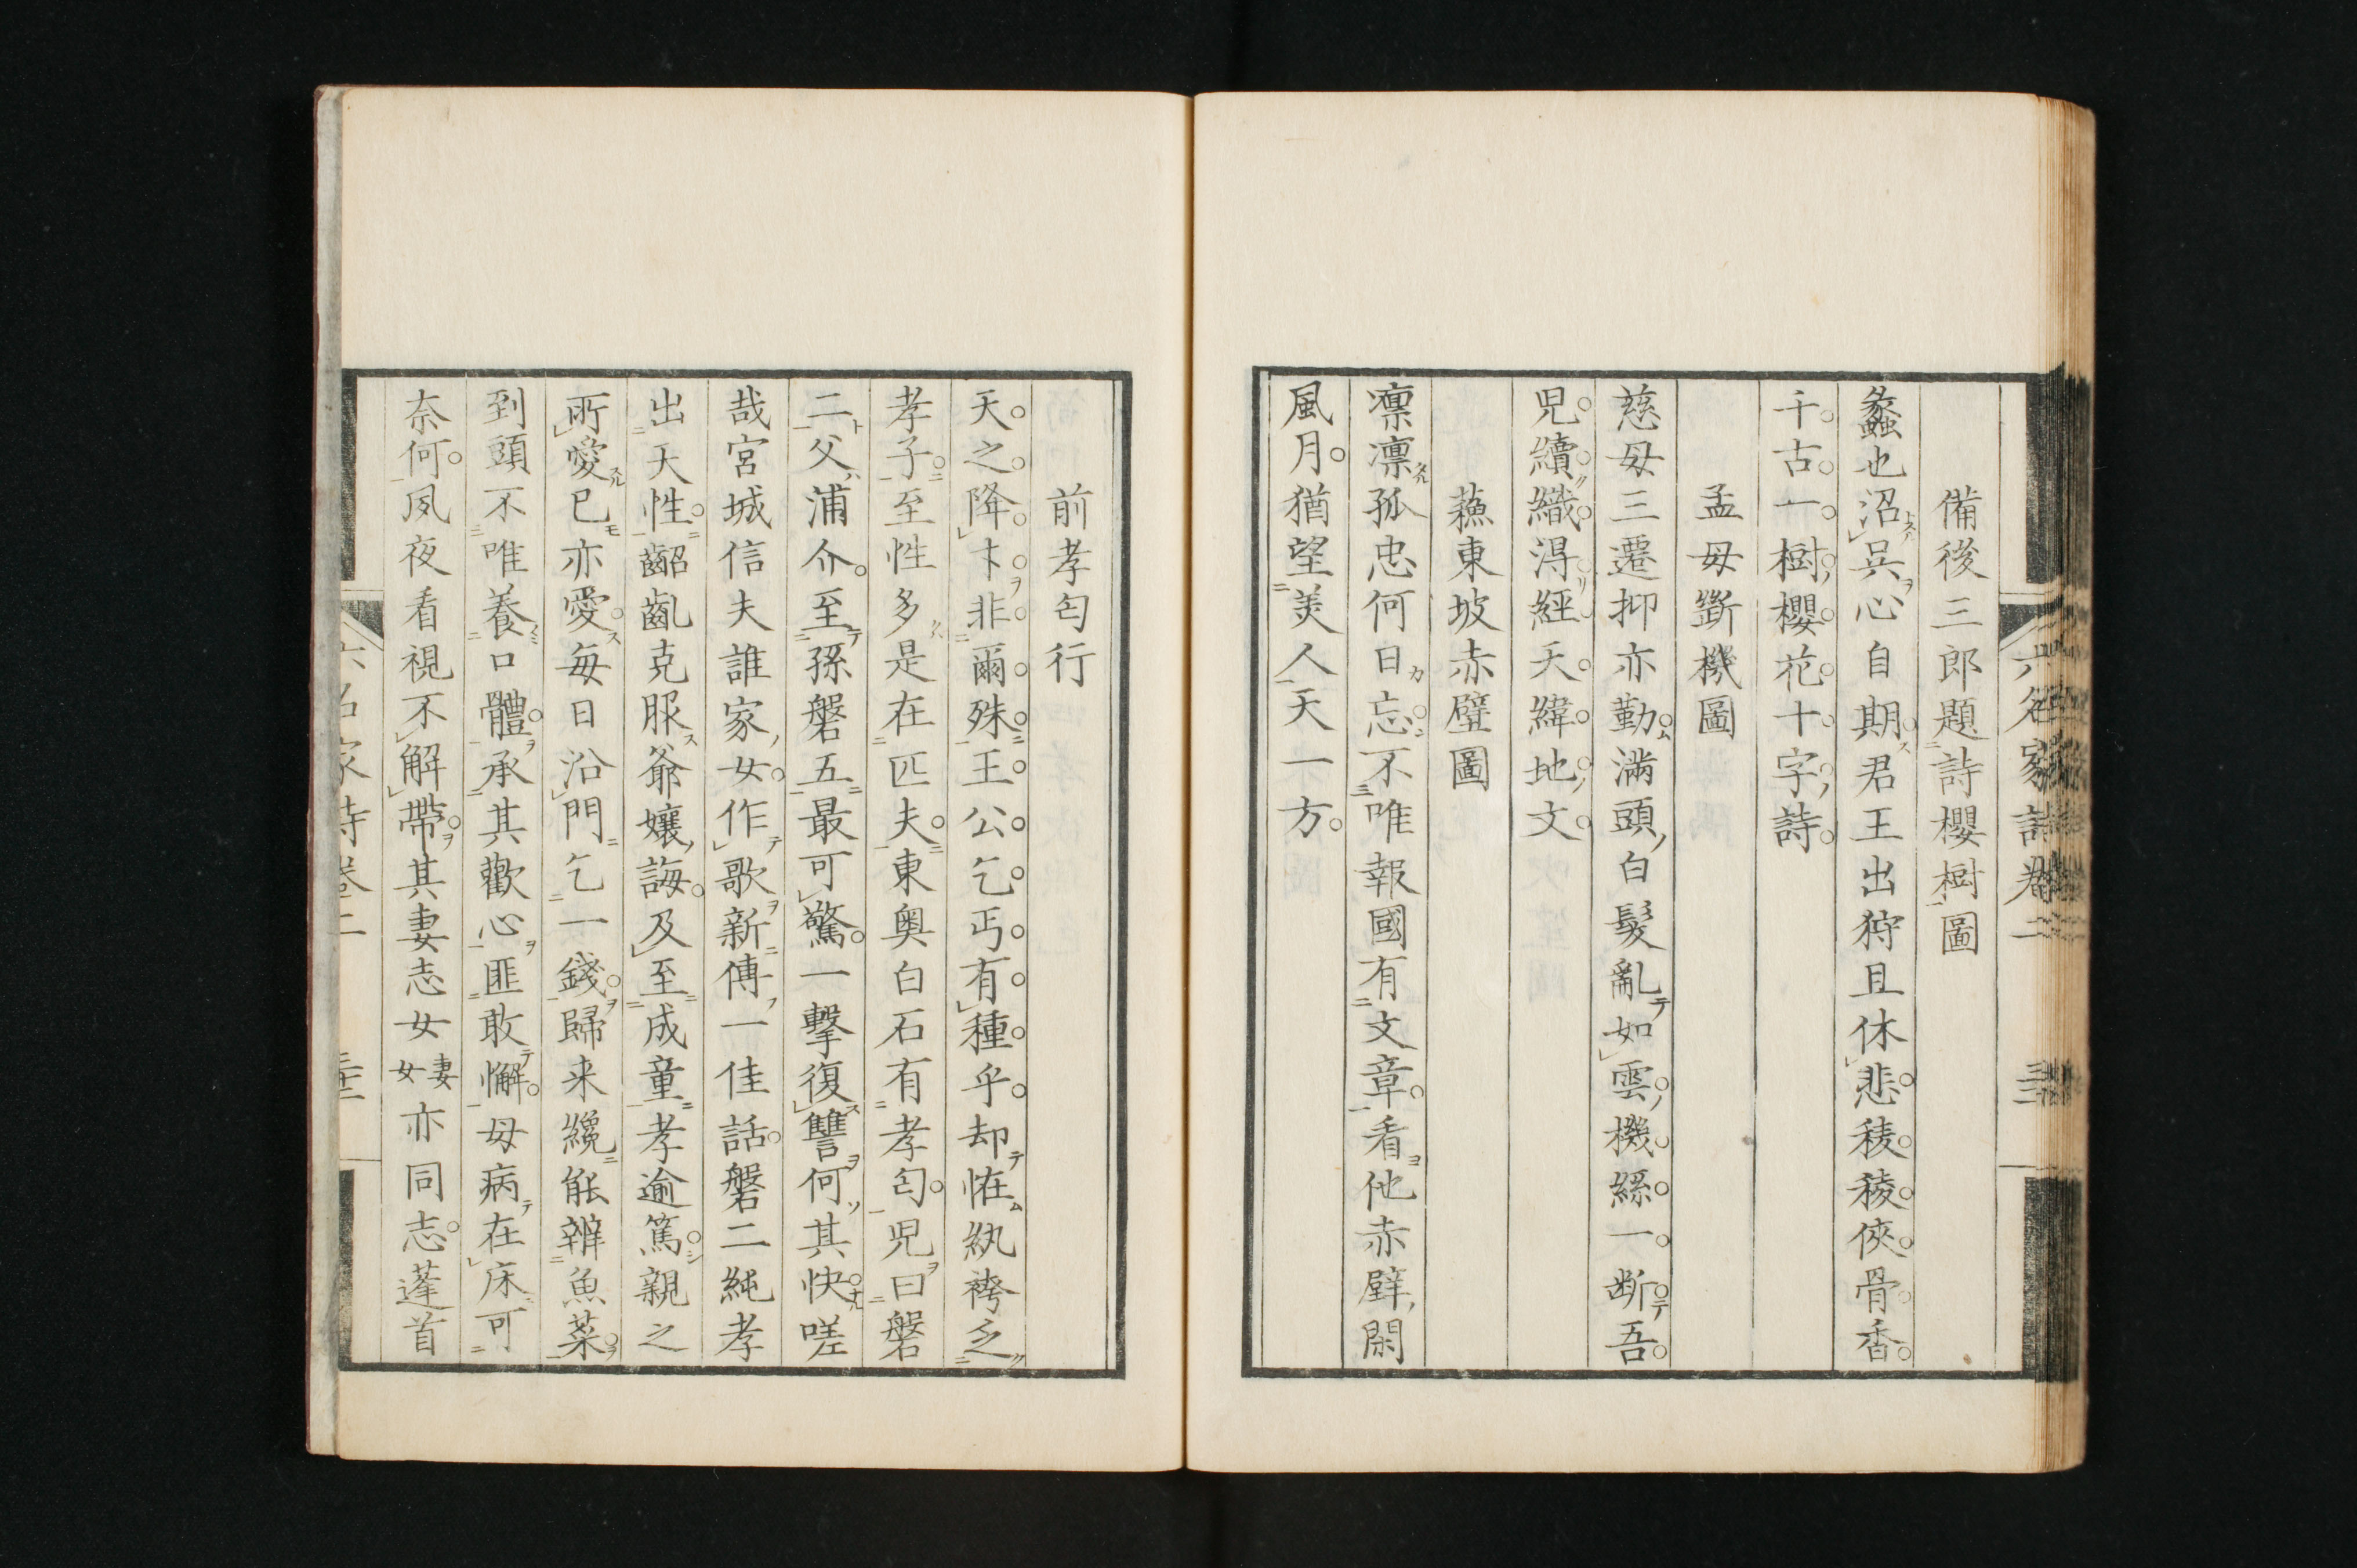 備後三郎題詩櫻樹圖
蠡也沼吳心自期君王出狩且休悲稜稜俠骨香
千古一樹櫻花十字詩
孟母斷機圖
慈母三遷抑亦勤滿頭白髮亂如雲機絲一断吾
兒續織得經天緯地文
蘓東坡赤壁圖
凛凛孤忠何日忘不唯報國有文章看他赤壁閑
風月猶望美人天一方
前孝匄行
天之降才非爾殊王公乞丐有種乎却恠紈袴乏
孝子至性多是在匹夫東奥白石有孝匄兒曰磐
二父浦介至孫磐五最可驚一撃復讐何其快嗟
哉宮城信夫誰家女作歌新傳一佳話磐二純孝
出天性齠齔克服爺孃誨及至成童孝逾篤親之
所愛已亦愛每日沿門乞一錢歸来纔能辨魚菜
到頭不唯養口體承其歡心匪敢懈母病在床可
奈何夙夜看視不解帶其妻志女妻女亦同志蓬首
六名家詩卷二